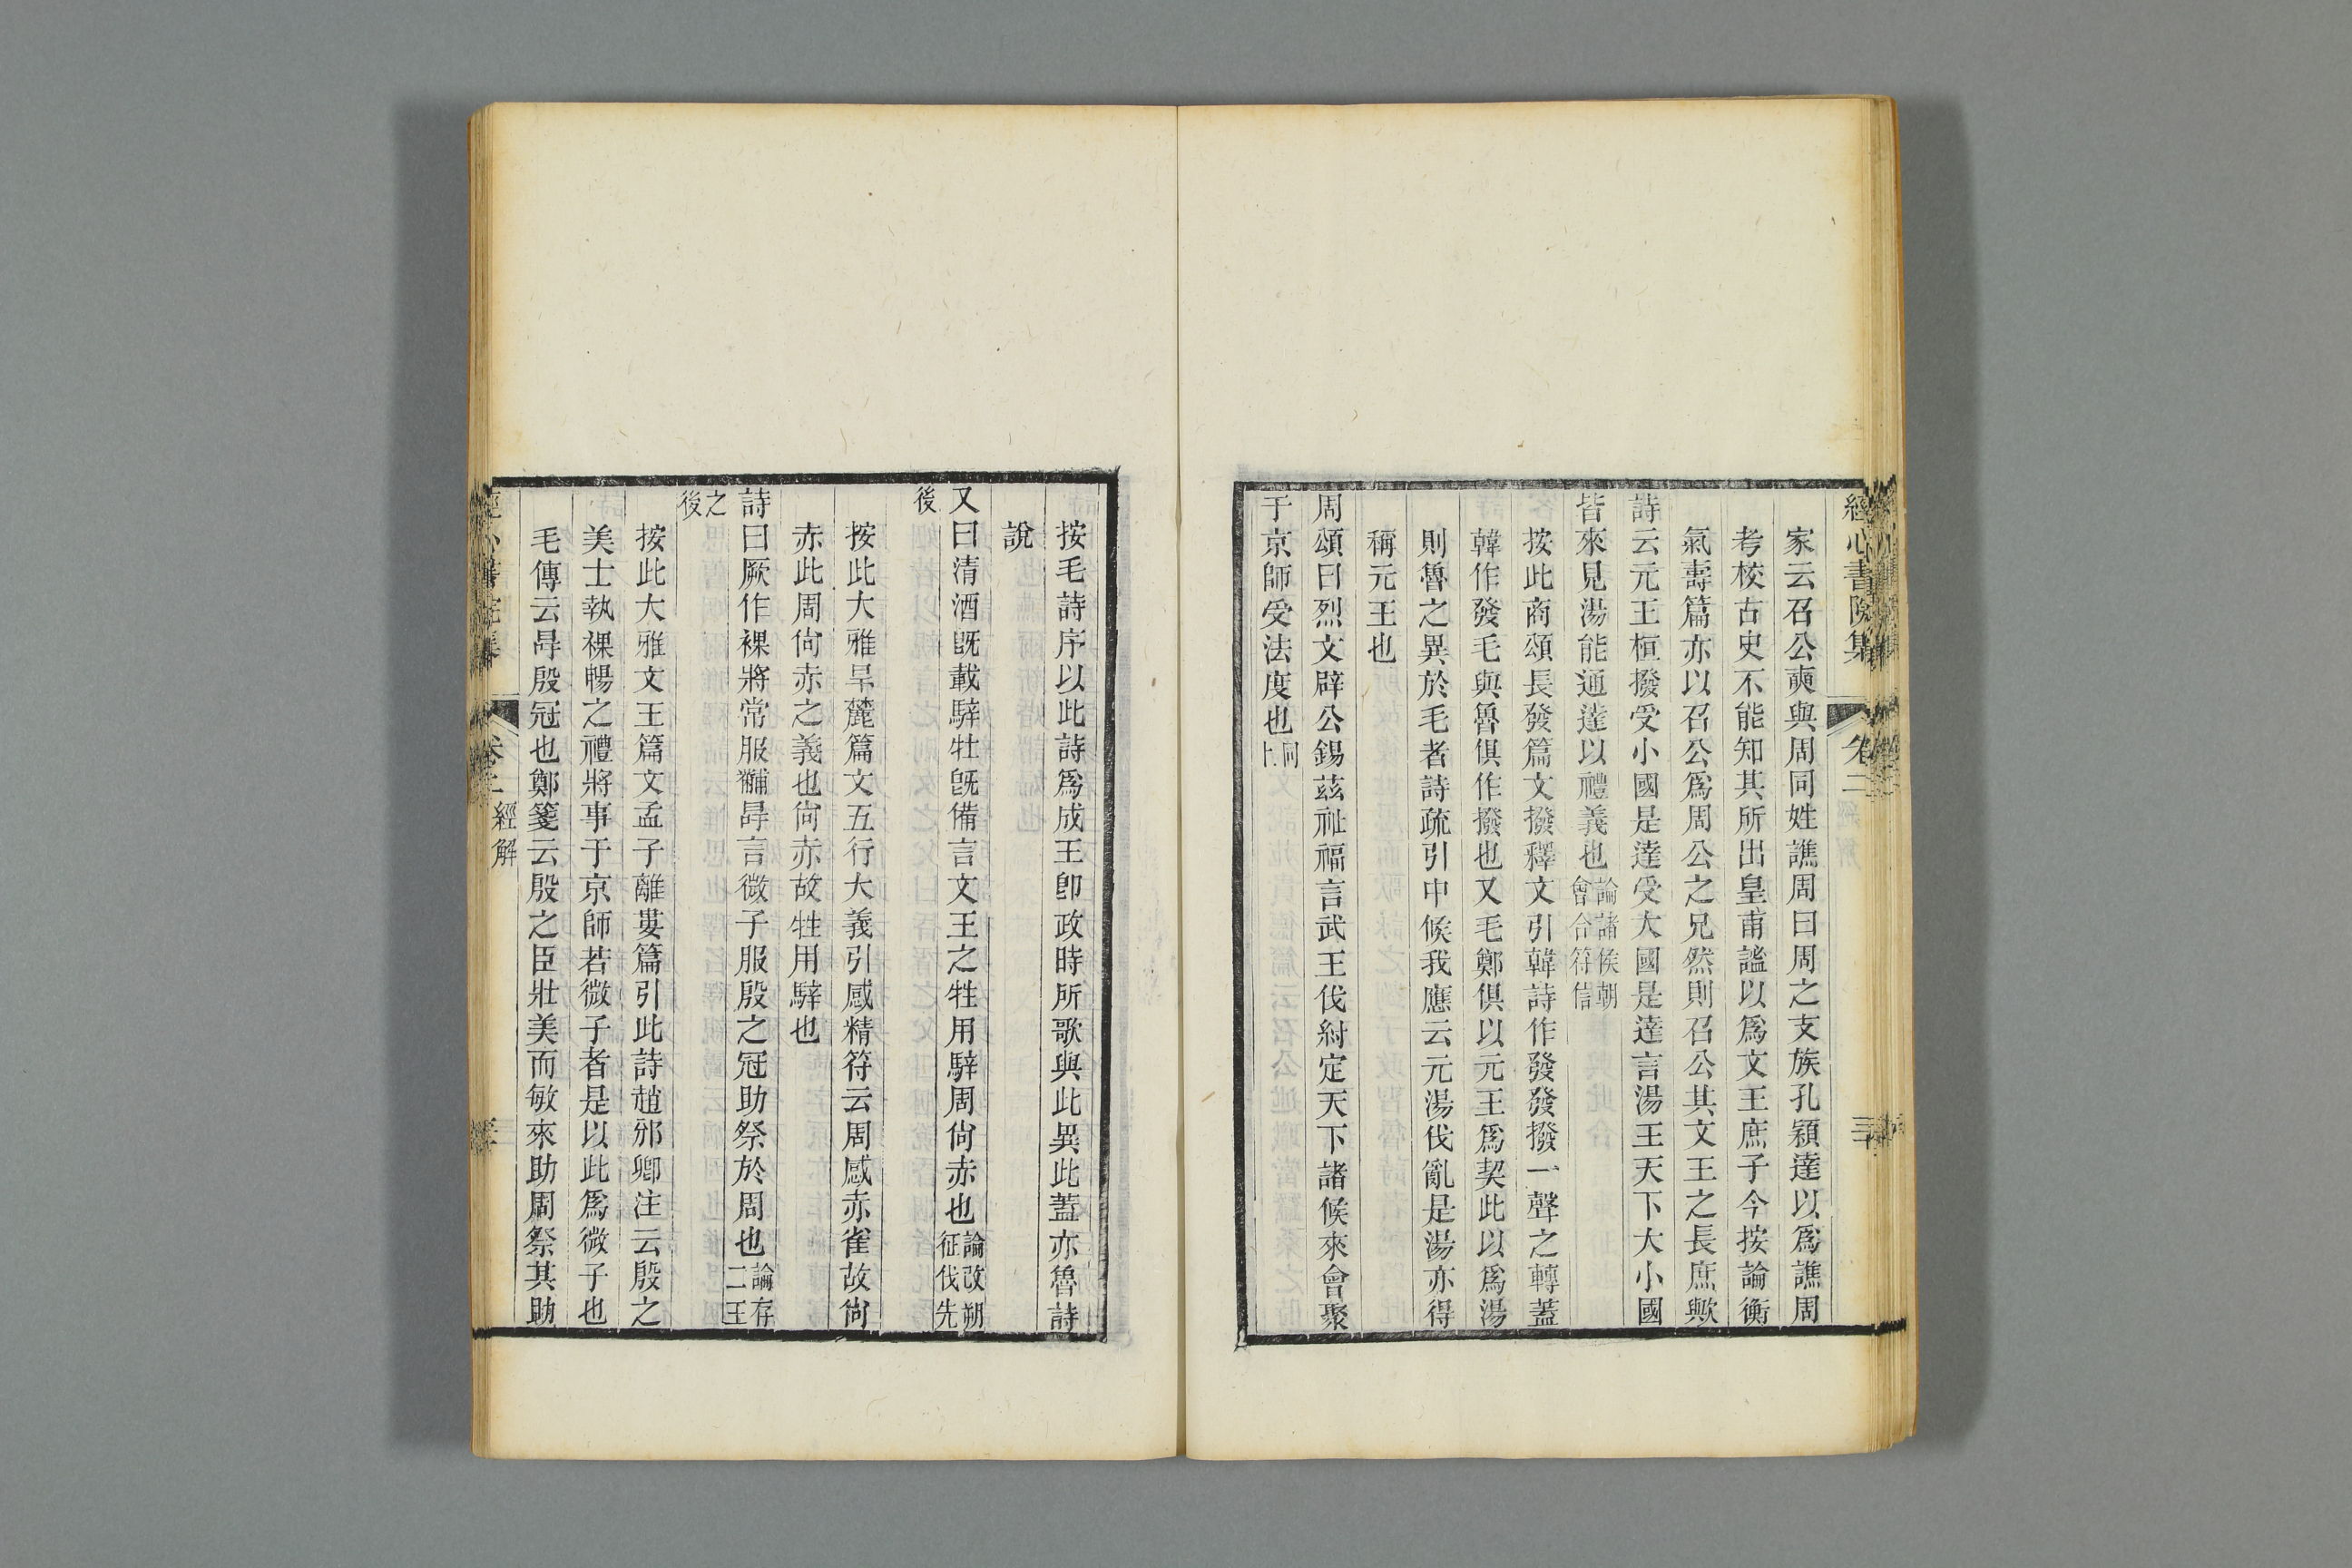 經心書院集
卷二
家云召公奭與周同姓譙周曰周之支族孔穎達以爲譙周
考校古史不能知其所出皇甫謐以爲文王庶子今按論衡
氣壽篇亦以召公爲周公之兄然則召公其文王之長庶歟
詩云元王桓撥受小國是達受大國是達言湯王天下大小國
皆來見湯能通達以禮義也論諸侯朝會合符信
按此商頌長發篇文撥釋文引韓詩作發發撥一聲之轉蓋
韓作發毛與魯俱作撥也又毛鄭俱以元王爲契此以爲湯
則魯之異於毛者詩疏引中候我應云元湯伐亂是湯亦得
稱元王也
周頌曰烈文辟公錫茲祉福言武王伐紂定天下諸候來會聚
于京師受法度也同上
按毛詩序以此詩爲成王卽政時所歌與此異此蓋亦魯詩
說
又曰清酒既載騂牡旣備言文王之牲用騂周尙赤也論改朔征伐先
後
按此大雅旱麓篇文五行大義引感精符云周感赤雀故尙
赤此周尙赤之義也尙赤故牲用騂也
詩曰厥作祼將常服黼冔言微子服殷之冠助祭於周也論存二王
之後
按此大雅文王篇文孟子離婁篇引此詩趙邠卿注云殷之
美士執祼暢之禮將事于京師若微子者是以此爲微子也
毛傳云冔殷冠也鄭箋云殷之臣壯美而敏來助周祭其助
經解